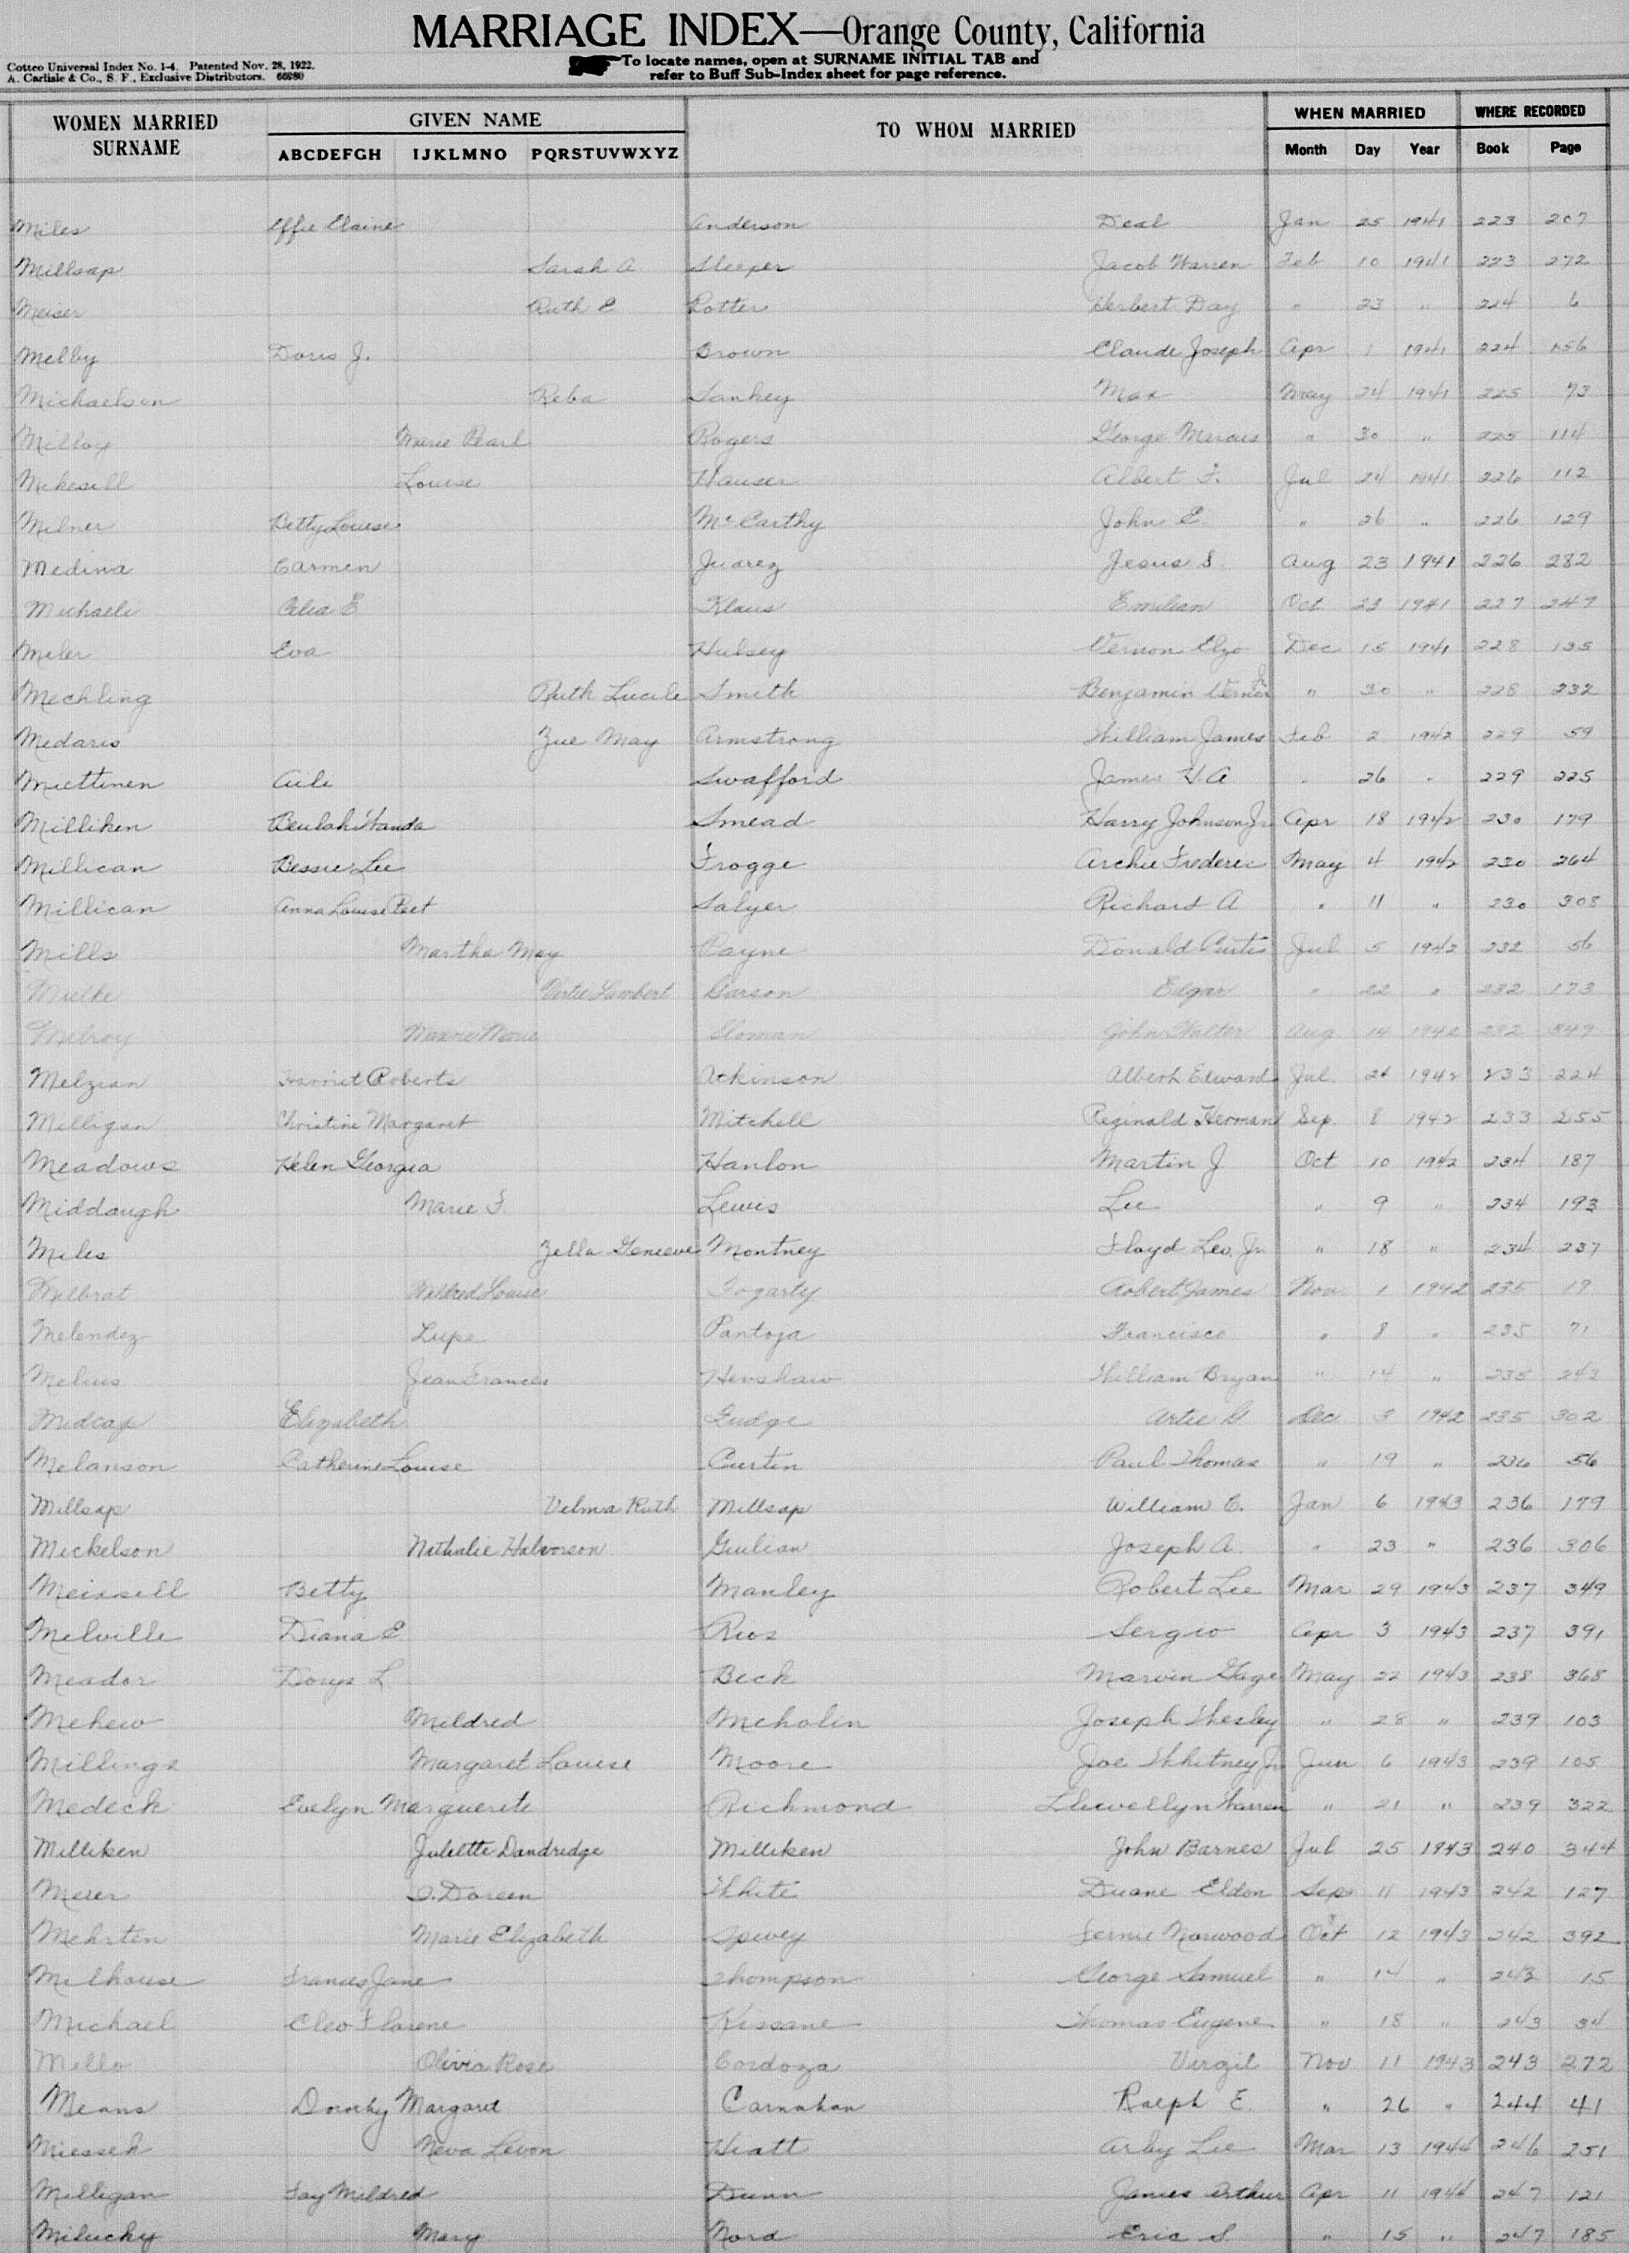 MARRIAGE INDEX—Orange County, California
Cotteo Universal Index No. 1-4. Patented Nov. 28, 1922.
A. Carlisle & Co., S. F., Exclusive Distributors. 66280
To locate names, open at SURNAME INITIAL TAB and
refer to Buff Sub-Index sheet for page reference.
WOMEN MARRIED SURNAME GIVEN NAME TO WHOM MARRIED WHEN MARRIED WHERE RECORDED
ABCDEFGH IJKLMNO PQRSTUVWXYZ Month Day Year Book Page
Miles Effie Elaine Anderson Deal Jan 25 1941 223 207
Millsap Sarah A. Sleeper Jacob Warren Feb 10 1941 223 272
Meiser Ruth E Potter Herbert Day " 23 " 224 6
Melby Doris J. Brown Claude Joseph Apr 1 1941 224 156
Michaelson Reba Sankey Max May 24 1941 225 73
Milloy Marie Pearl Rogers George Marcus " 30 " 225 114
Mikesell Louise Hauser Albert F. Jul 24 1941 226 112
Milner Betty Louise McCarthy John E. " 26 " 226 129
Medina Carmen Juarez Jesus S. Aug 23 1941 226 282
Michaeli Celia E Klaus Emilian Oct 23 1941 227 249
Meler Eva Hulsey Vernon Elzo Dec 15 1941 228 135
Mechling Ruth Lucile Smith Benjamin Vernon Jr " 30 " 228 232
Medaris Zue May Armstrong William James Feb 2 1942 229 59
Miettinen Aile Swafford James H. A " 26 " 229 225
Milliken Beulah Wanda Smead Harry Johnson Jr Apr 18 1942 230 179
Millican Bessie Lee Frogge Archie Frederic May 4 1942 230 264
Millican Anna Louise Peet Salyer Richard A " 11 " 230 308
Mills Martha May Payne Donald Curtis Jul 5 1942 232 56
Mielke Lambert Carson Edgar " 22 " 232 173
Milroy Marie Sloman John Walter Aug 14 1942 232 349
Melzian Harriet Roberts Atkinson Albert Edward Jul. 26 1942 233 224
Milligan Christine Margaret Mitchell Reginald Herman Sep. 8 1942 233 255
Meadows Helen Georgia Hanlon Martin J Oct 10 1942 234 187
Middaugh Marie F. Lewis Lee " 9 " 234 193
Miles Zella Genieve Montney Floyd Leo, Jr. " 18 " 234 237
Milbrat Mildred Louise Fogarty Robert James Nov 1 1942 235 19
Melendez Lupe Pantoja Francisco " 8 " 235 71
Melius Jean Frances Henshaw William Bryan " 14 " 235 243
Midcap Elizabeth Gudge Artie G Dec 3 1942 235 302
Melanson Catherine Louise Curtin Paul Thomas " 19 " 236 56
Millsap Velma Ruth Millsap William C. Jan 6 1943 236 179
Mickelson Nathalie Halvorson Giulian Joseph A. " 23 " 236 306
Meixsell Betty Manley Robert Lee Mar 29 1943 237 349
Melville Diana E Rios Sergio Apr 3 1943 237 391
Meador Dorys L Beck Marvin Gage May 22 1943 238 368
Mehew Mildred McHolin Joseph Wesley " 28 " 239 103
Millings Margaret Louise Moore Joe Whitney Jr Jun 6 1943 239 105
Medeck Evelyn Marguerite Richmond Llewellyn Warren " 21 " 239 322
Milliken Juliette Dandridge Milliken John Barnes Jul 25 1943 240 344
Meier I. Doreen White Duane Eldon Sep 11 1943 242 127
Mehrten Marie Elizabeth Spivey Fernie Norwood Oct 12 1943 242 392
Milhouse Frances Jane Thompson George Samuel " 14 " 243 15
Michael Cleo Florene Kissane Thomas Eugene " 18 " 243 34
Mello Olivia Rose Cordoza Virgil Nov 11 1943 243 272
Means Dorothy Margaret Carnahan Ralph E. " 26 " 244 41
Miessek Neva Levon Hiatt Arby Lee Mar 13 1944 246 251
Milligan Fay Mildred Dunn James Arthur Apr 11 1944 247 121
Milucky Mary Nord Eric S. " 15 " 247 185